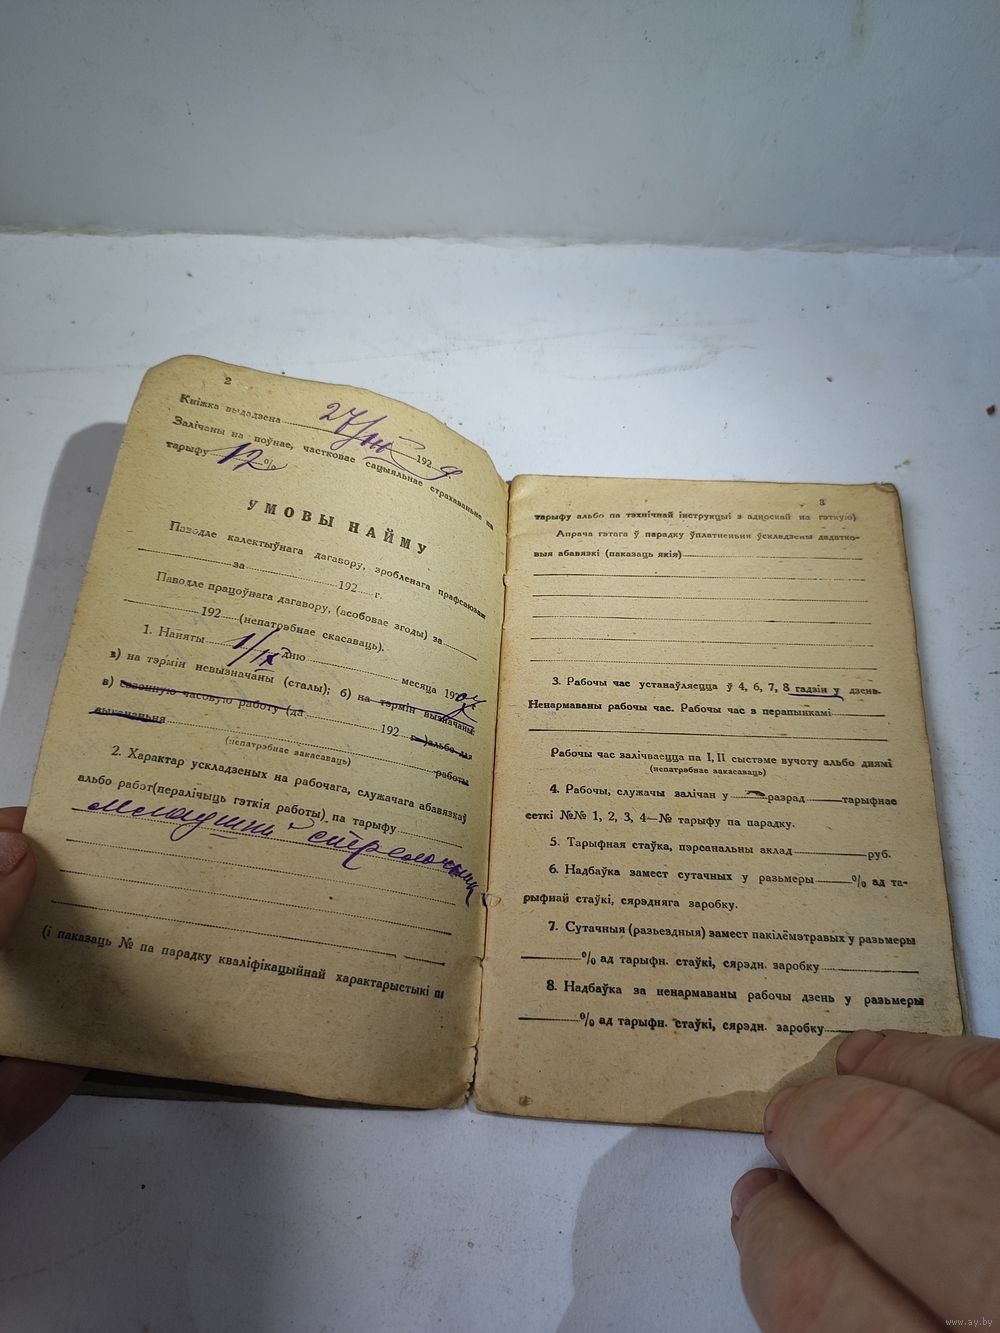 2
Кніжка выдадзена 27/ 192 9 г.
Залічаны на поўнае, частковае сацыяльнае страхаваньне па
тарыфу 12 %
УМОВЫ НАЙМУ
Паводле калектыўнага дагавору, зробленага прафсаюзам
за 192 г.
Паводле працоўнага дагавору, (асобовае згоды) за
192 (непатрэбнае скасаваць).
1. Наняты 1/IX дню месяца 192
а) на тэрмін невызначаны (сталы); б) на тэрмін вызначаны
в) сезонную часовую работу (да 192 г.) альбо для
выкананьня работы
(непатрэбнае закасаваць)
2. Характар ускладзеных на рабочага, служачага абавязкаў
альбо работ (пералічыць гэткія работы) па тарыфу
младший стрелочник
(і паказаць № па парадку кваліфікацыйнай характарыстыкі п
3
тарыфу альбо па тэхнічнай інструкцыі з адноскай на гэткую)
Апрача гэтага ў парадку ўплатненьня ўскладзены дадатко-
выя абавязкі (паказаць якія)
3. Рабочы час устанаўляецца ў 4, 6, 7, 8 гадзін у дзень.
Ненармаваны рабочы час. Рабочы час з перапынкамі
Рабочы час залічваецца па I, II сыстэме вучоту альбо днямі
(непатрэбнае закасаваць)
4. Рабочы, служачы залічан у разрад тарыфнае
сеткі №№ 1, 2, 3, 4—№ тарыфу па парадку.
5. Тарыфная стаўка, пэрсанальны аклад руб.
6. Надбаўка замест сутачных у разьмеры % ад та-
рыфнай стаўкі, сярэдняга заробку.
7. Сутачныя (разьездныя) замест пакілёмэтравых у разьмеры
% ад тарыфн. стаўкі, сярэдн. заробку
8. Надбаўка за ненармаваны рабочы дзень у разьмеры
% ад тарыфн. стаўкі, сярэдн. заробку
www.ay.by